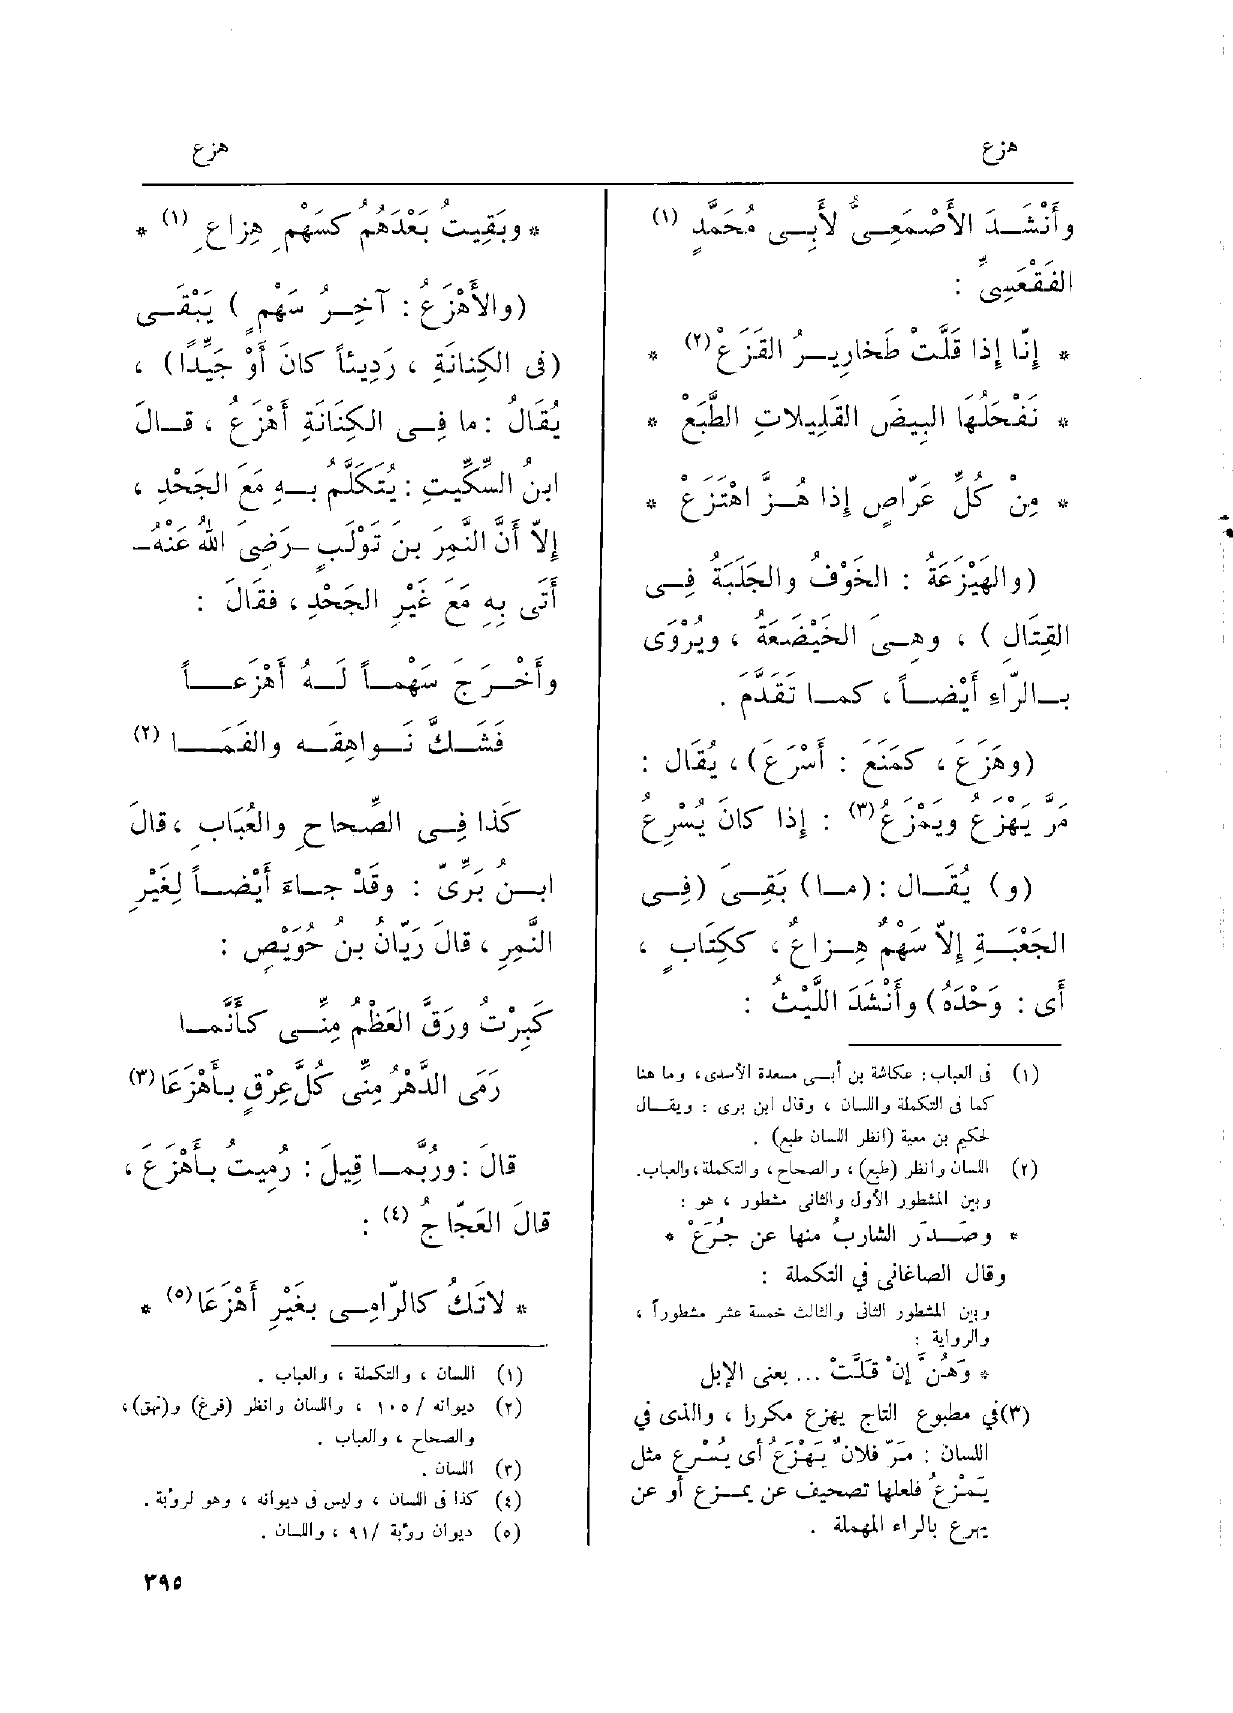 هزع
هزع
وأَنْشَدَ الأَصْمَعِىُّ لأَبِى مُحَمَّدٍ (١)
الفَقْعَسِىِّ :
* إِنّا إِذا قَلَّتْ طَخارِيرُ القَزَعْ (٢) *
* نَفْحَلُها البِيضَ القَلِيلاتِ الطَّبَعْ *
* مِنْ كُلِّ عَرّاصٍ إِذا هُزَّ اهْتَزَعْ *
(والهَيْزَعَةُ : الخَوْفُ والجَلَبَةُ فِى
القِتَالِ ) ، وهِىَ الخَيْضَعَةُ ، ويُرْوَى
بالرّاءِ أَيْضاً ، كما تَقَدَّم .
(وهَزَعَ ، كمَنَعَ : أَسْرَعَ) ، يُقَال :
مَرَّ يَهْزَعُ ويَمْزَعُ (٣) : إِذا كانَ يُسْرِعُ
(و) يُقَال : (ما) بَقِىَ (فِى
الجَعْبَةِ إِلاّ سَهْمُ هِزاعٌ ، ككِتَابٍ ،
أَى : وَحْدَهُ) وأَنْشَدَ اللَّيْثُ :
(١) فى العباب : عكاشة بن أبى مسعدة الأسدى ، وما هنا
كما فى التكملة واللسان ، وقال ابن برى : ويقال
لحكيم بن معية (انظر اللسان طبع) .
(٢) اللسان وانظر (طبع) ، والصحاح ، والتكملة ، والعباب.
وبين المشطور الأول والثانى مشطور ، هو :
* وصَدَر الشاربُ منها عن جُرَعْ *
وقال الصاغانى في التكملة :
وبين المشطور الثانى والثالث خمسة عشر مشطوراً ،
والرواية :
* وَهُنَّ إِنْ قَلَّتْ ... يعنى الإبل
(٣) في مطبوع التاج يهزع مكررا ، والذى في
اللسان : مَرّ فلانٌ يَهْزَعُ أى يُسْرع مثل
يَمْزعُ فلعلها تصحيف عن يمزع أو عن
يهرع بالراء المهملة .
* وبَقِيتُ بَعْدَهُمُ كسَهْمِ هِزاعِ (١) *
(والأَهْزَعُ : آخِرُ سَهْمٍ ) يَبْقَى
(فى الكِنانَةِ ، رَدِيئاً كانَ أَوْ جَيِّدًا) ،
يُقَالُ : ما فِى الكِنَانَةِ أَهْزَعُ ، قالَ
ابنُ السِّكِّيتِ : يُتَكَلَّمُ بِهِ مَعَ الجَحْدِ ،
إِلاّ أَنَّ النَّمِرَ بن تَوْلَبٍ -رَضِىَ اللهُ عَنْهُ-
أَتَى بِهِ مَعَ غَيْرِ الجَحْدِ ، فقالَ :
وأَخْرَجَ سَهْماً لَهُ أَهْزَعاً
فَشَكَّ نَواهِقَه والفَمَا (٢)
كَذا فِى الصِّحاحِ والعُبَابِ ، قالَ
ابنُ بَرِّىّ : وقَدْ جاءَ أَيْضاً لِغَيْرِ
النَّمِرِ ، قالَ رَيّانُ بنُ حُوَيْصٍ :
كَبِرْتُ ورَقَّ العَظْمُ مِنِّى كأَنَّما
رَمَى الدَّهْرُ مِنِّى كُلَّ عِرْقٍ بأَهْزَعَا (٣)
قالَ : ورُبَّما قِيلَ : رُمِيتُ بأَهْزَعَ ،
قالَ العَجّاجُ (٤) :
* لاتَكُ كالرّامِى بِغَيْرِ أَهْزَعَا (٥) *
(١) اللسان ، والتكملة ، والعباب .
(٢) ديوانه / ١٠٥ ، واللسان وانظر (فرغ) و(نهق) ،
والصحاح ، والعباب .
(٣) اللسان .
(٤) كذا فى اللسان ، وليس فى ديوانه ، وهو لرؤبة .
(٥) ديوان رؤبة / ٩١ ، واللسان .
٣٩٥